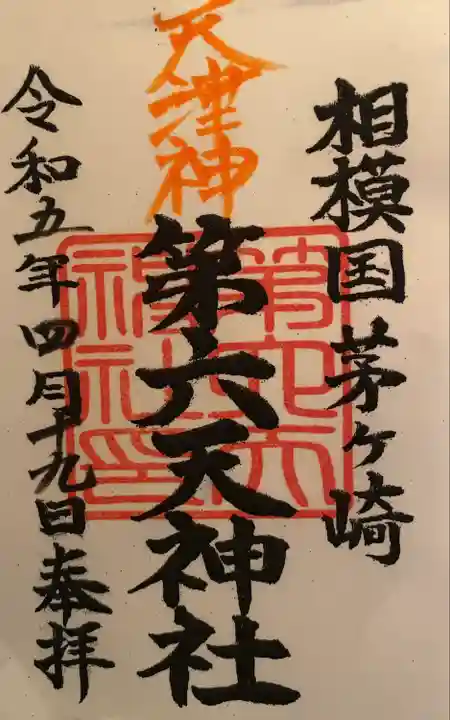 相模国茅ヶ崎
天津神
第六天神社
第六天
神社印
令和五年四月十九日奉拝